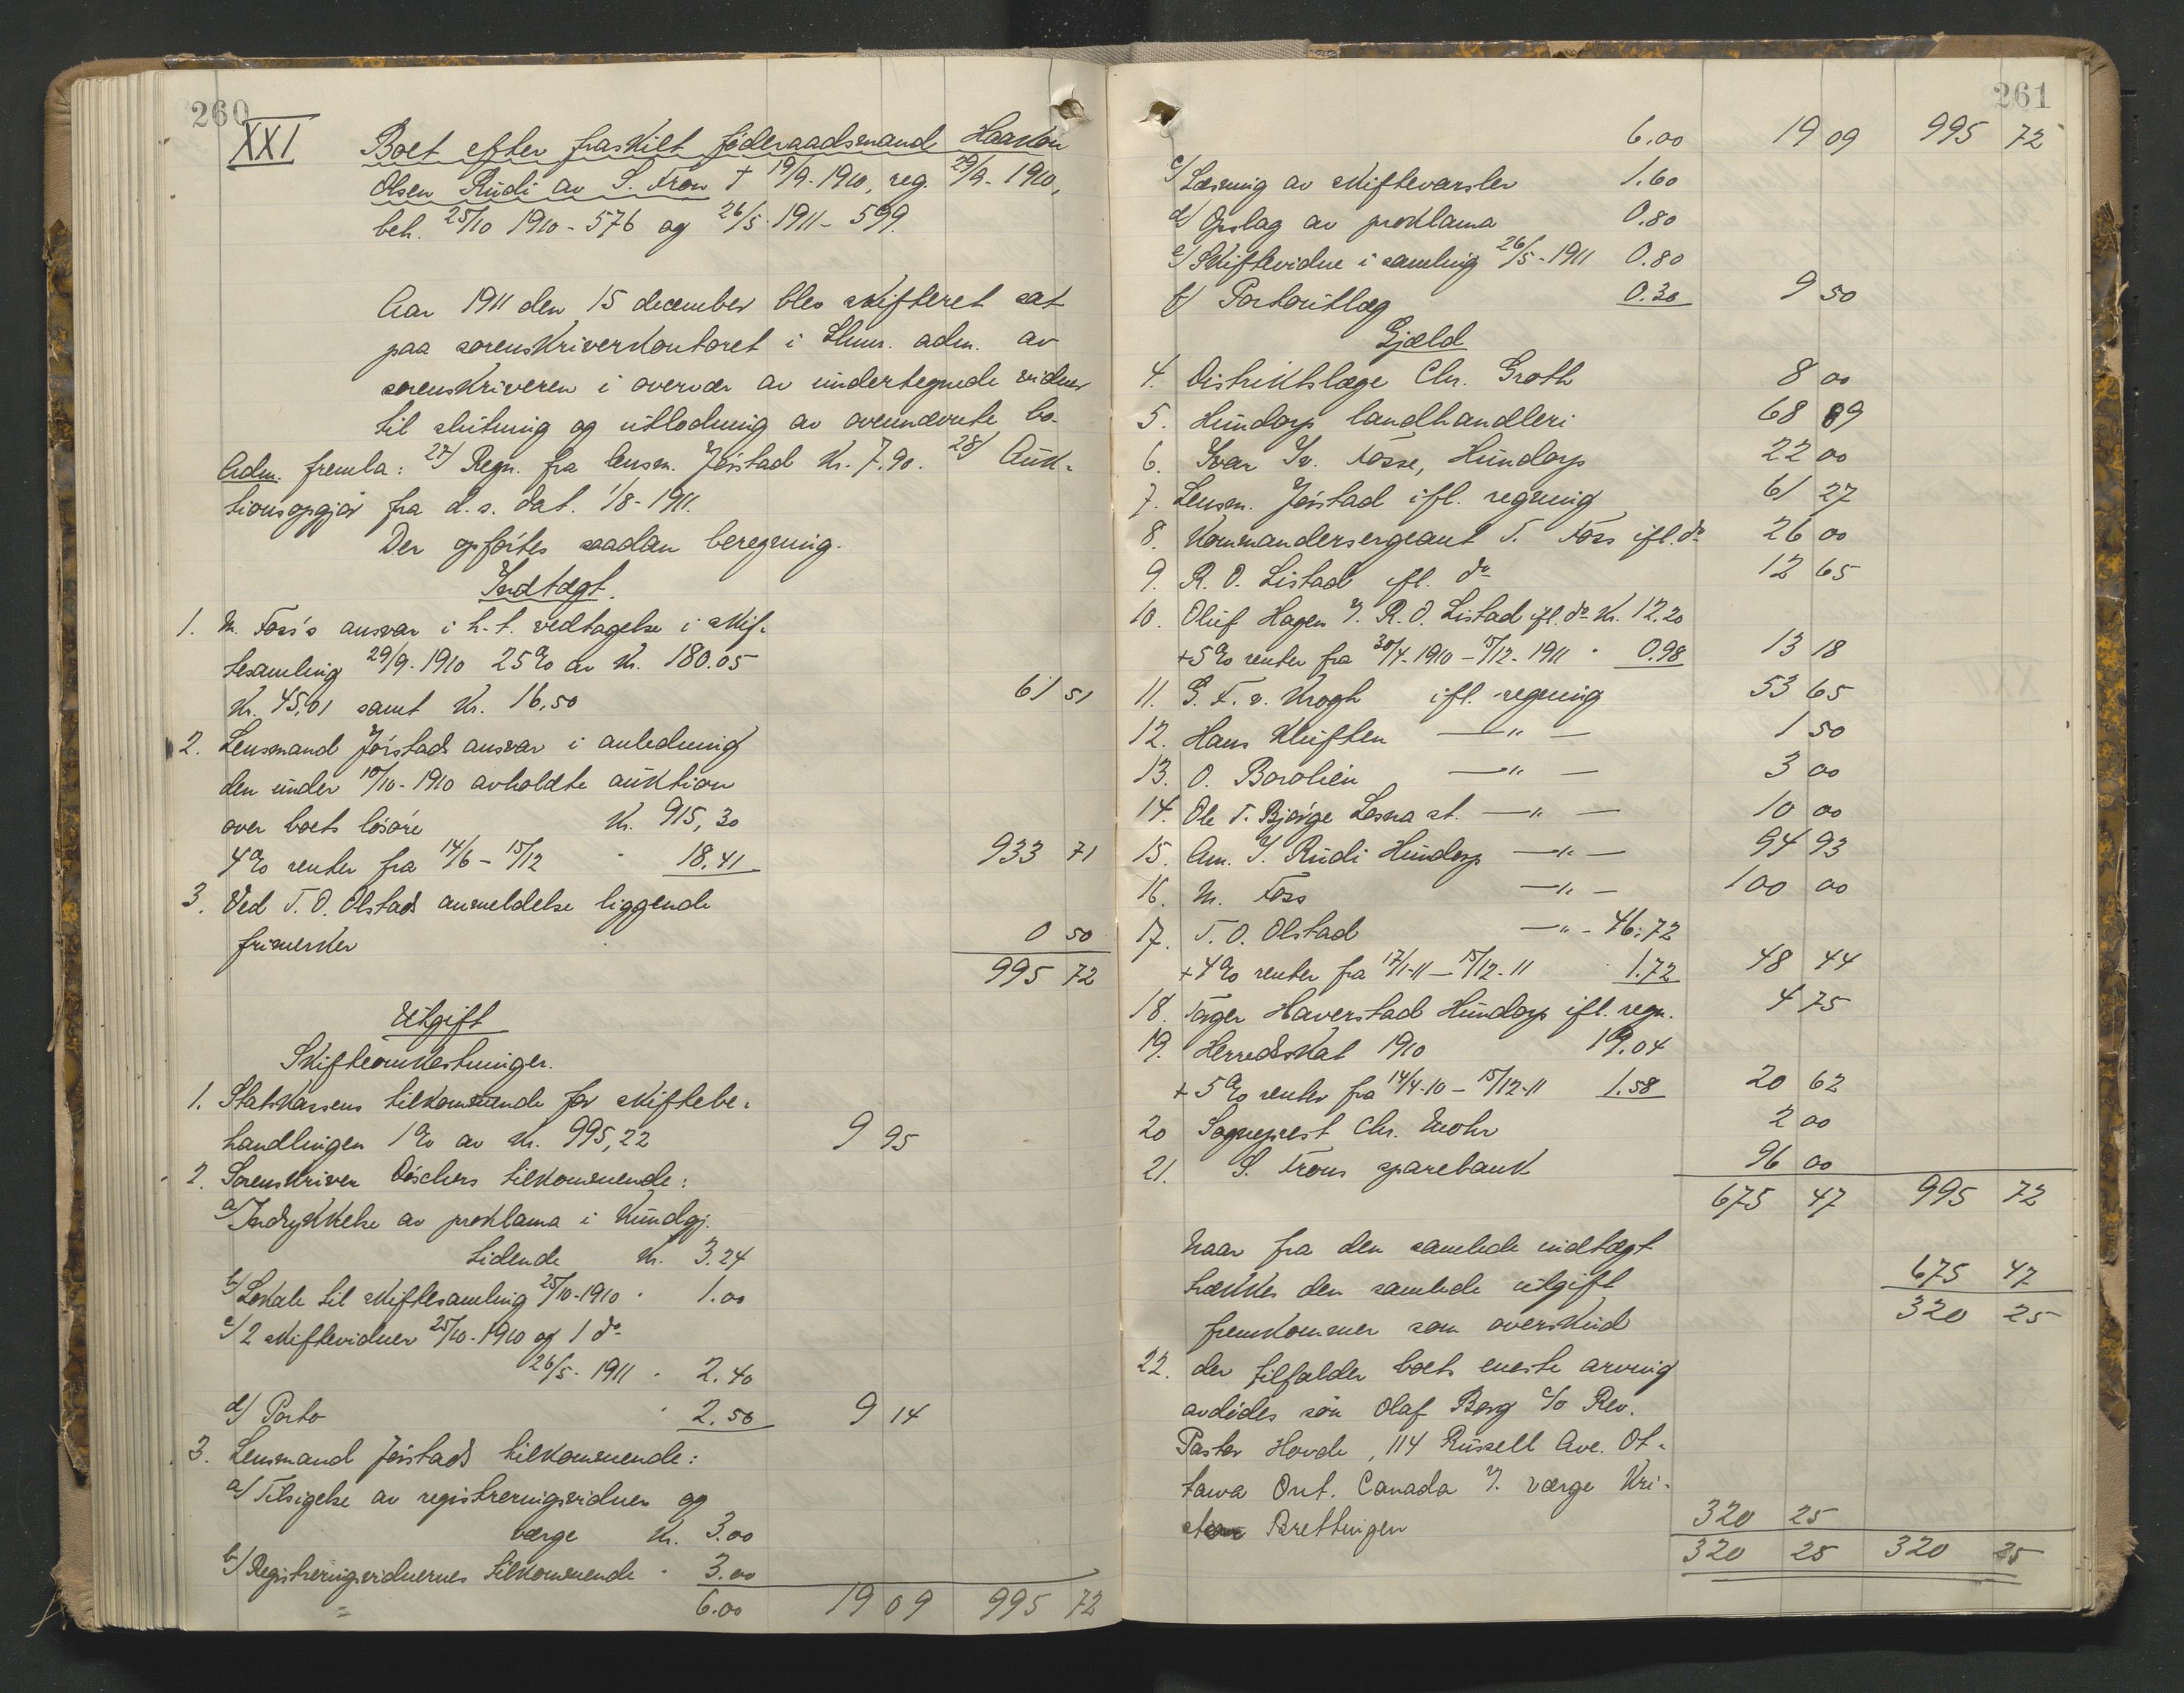 260
XXI Boet efter fraskilt föderaadsmand Haakon
Olsen Rudi av S. Fron † 19/9-1910, reg. 29/9-1910,
beh. 25/10 1910-576 og 26/5-1911-599.
Aar 1911 den 15 december blev skifteret sat
paa sorenskriverkontoret i Lhmr. adm. av
sorenskriveren i overvær av undertegnede vidner
til slutning og utlodning av ovennævnte bo.
Adm. fremla: 27/ Regn. fra lensm. Jörstad Kr. 7.90. 28/ Auk-
tionsopgjör fra d.s. dat. 1/8-1911.
Der opförtes saadan beregning.
Indtægt.
1. M. Foss's ansvar i h.t. vedtagelse i skif-
tesamling 29/9-1910 25% av Kr. 180.05
Kr. 45,01 samt Kr. 16,50 61 51
2. Lensmand Jörstads ansvar i anledning
den under 10/10-1910 avholdte auktion
over boets lösöre Kr. 915,30
4% renter fra 14/6-15/12 " 18.41 933 71
3. Ved T. O. Olstads anmeldelse liggende
frimerker 0 50
995 72
Utgift
Skifteomkostninger.
1. Statskassens tilkommende for skiftebe-
handlingen 1% av Kr. 995,22 9 95
2. Sorenskriver Döschers tilkommende:
a/ Indrykkelse av proklama i Kundgj.
tidende Kr. 3.24
b/ Lokale til skiftesamling 25/10-1910 " 1.00
c/ 2 skiftevidner 25/10-1910 og 1 do
26/5-1911 " 2.40
d/ Porto " 2.50 9 14
3. Lensmand Jörstads tilkommende:
a/ Tilsigelse av registreringsvidner og
værge Kr. 3.00
b/ Registreringsvidnernes tilkommende " 3.00
6.00 19 09 995 72
261
6.00 19 09 995 72
c/ Læsning av skiftevarsler 1.60
d/ Opslag av proklama 0.80
e/ Skiftevidne i samling 26/5-1911 0.80
f/ Portoutlæg 0.30 9 50
Gjæld
4. Distriktslæge Chr. Groth 8 00
5. Hundorp landhandleri 68 89
6. Ivar Iv. Fosse, Hundorp 22 00
7. Lensm. Jörstad ifl. regning 61 27
8. Kommandersergeant T. Foss ifl. do 26 00
9. R. O. Listad ifl. do 12 65
10. Oluf Hagen v. R. O. Listad ifl. do Kr. 12.20
+5% renter fra 30/4-1910-15/12-1911 " 0.98 13 18
11. G. F. v. Krogh ifl. regning 53 65
12. Hans Kluften —"— 1 50
13. O. Borolien —"— 3 00
14. Ole T. Bjørge Losna st. —"— 10 00
15. Am. I. Rudi Hundorp —"— 94 93
16. M. Foss —"— 100 00
17. T. O. Olstad —"— 46.72
+4% renter fra 17/1-11-15/12-11 1.72 48 44
18. Tøger Haverstad Hundorp ifl. regn. 4 75
19. Herredsskat 1910 19.04
+5% renter fra 14/4-10-15/12-11 1.58 20 62
20 Sogneprest Chr. Mohr 2 00
21. S. Frons sparebank 96 00
675 47 995 72
Naar fra den samlede indtægt
trækkes den samlede utgift 675 47
fremkommer som overskud 320 25
22. der tilfalder boets eneste arving
avdödes sön Olaf Berg c/o Rev.
Pastor Hovde, 114 Russell Ave. Ot-
tawa Ont. Canada v. værge Kri-
Brettingen 320 25
320 25 320 25